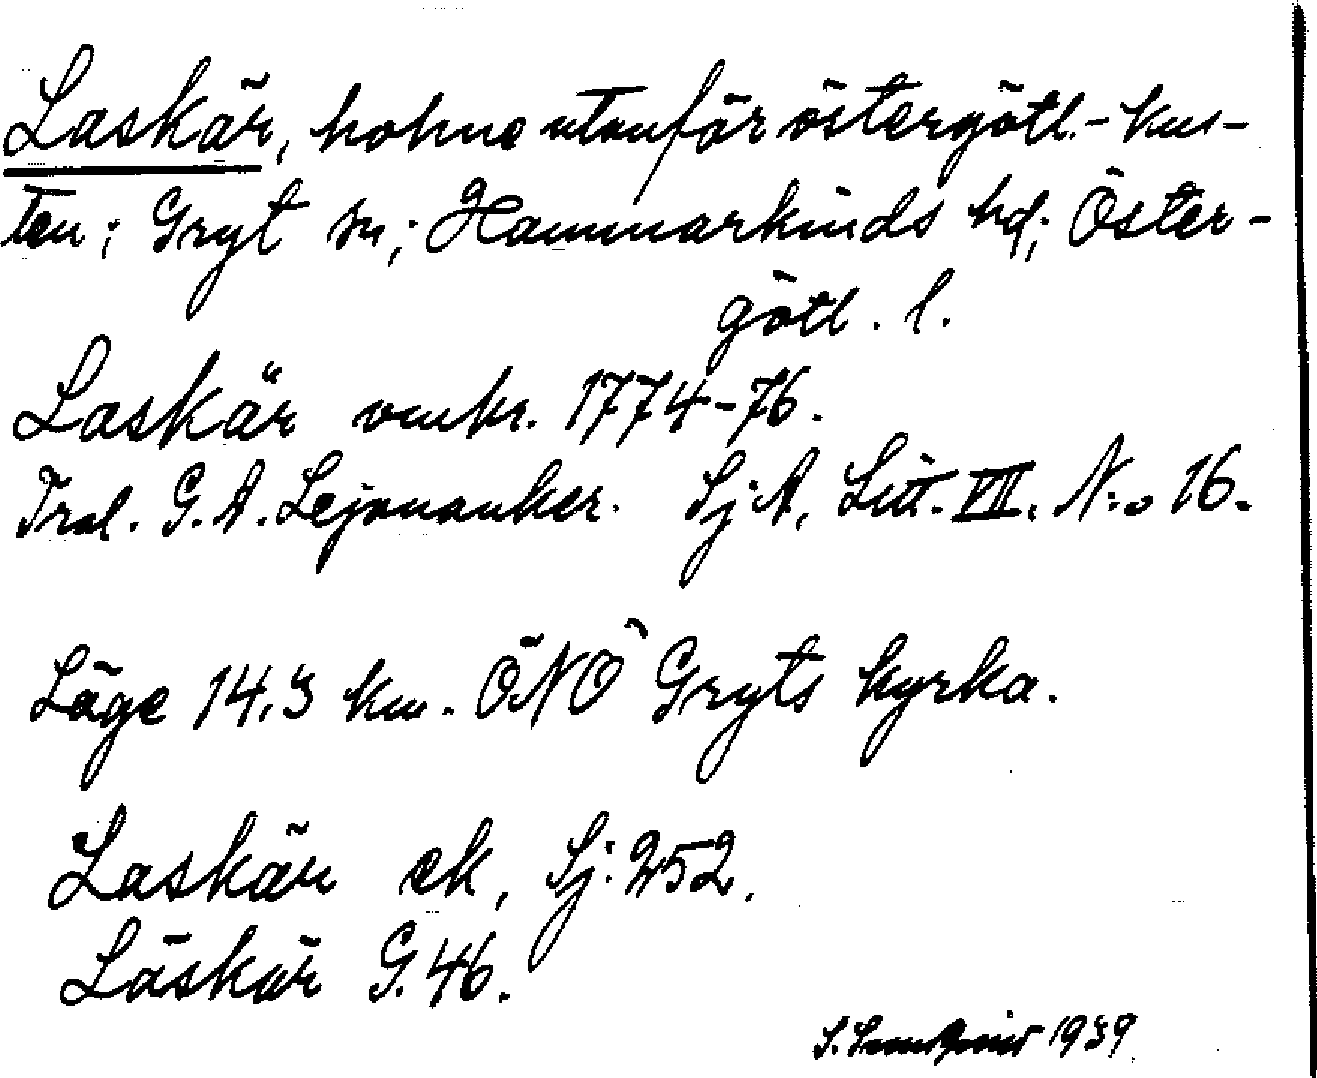 Laskär, holme utanför östergötl.- kus-
ten; Gryt sn; Hammarkinds hd; Öster-
götl. l.
Laskär omkr. 1774-76.
Tral. G. A. Lejonanker. Sj A, Litt. VII. N:o 16.
Läge 14,3 km. ÖNÖ Gryts kyrka.
Laskär ek, Sj: 252.
Läskär G. 46.
S. 1939